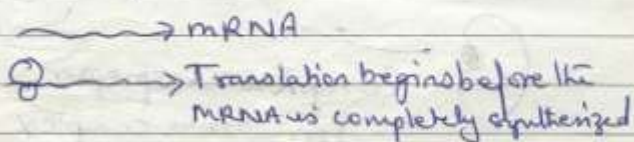 mRNA
Translation begins before the
mRNA is completely synthesized